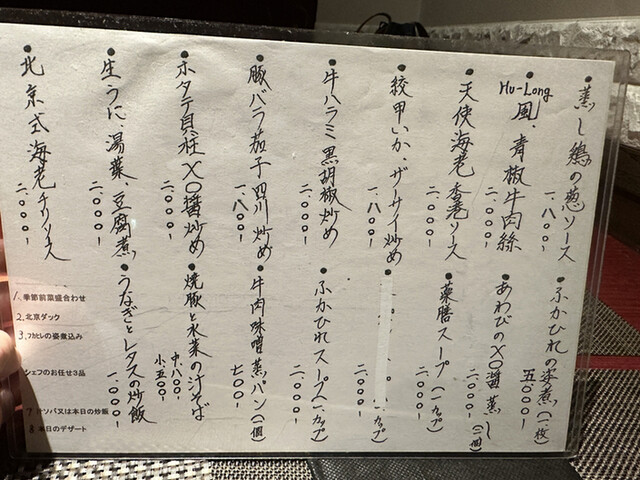 ・蒸し鶏の葱ソース
一、八〇〇-
・Hu-Long風、青椒牛肉絲
二、〇〇〇-
・天使海老 香港ソース
二、〇〇〇-
・紋甲いか、ザーサイ炒め
一、八〇〇-
・牛ハラミ黒胡椒炒め
二、〇〇〇-
・豚バラ茄子四川炒め
一、八〇〇-
・ホタテ貝柱XO醤炒め
二、〇〇〇-
・生うに、湯葉、豆腐煮
二、〇〇〇-
・北京式海老チリソース
二、〇〇〇-
・ふかひれの姿煮(一枚)
五、〇〇〇-
・あわびのXO醤蒸し
二、〇〇〇-(一個)
・薬膳スープ(一カップ)
二、〇〇〇-
(一カップ)
・ふかひれスープ(一カップ)
二、〇〇〇-
・牛肉味噌蒸パン(一個)
七〇〇-
・焼豚と水菜の汁そば
中、八〇〇-
小、五〇〇-
・うなぎとレタスの炒飯
一、〇〇〇-
1、季節前菜盛合わせ
2、北京ダック
3、フカヒレの姿煮込み
シェフのお任せ3品
7 汁ソバ又は本日の炒飯
8 本日のデザート